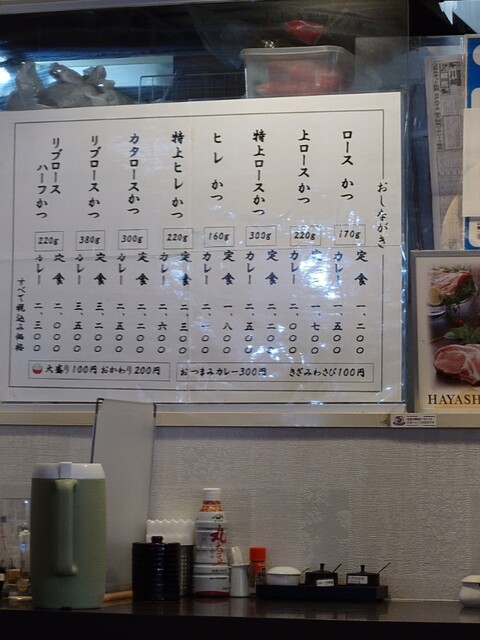 おしながき
ロースかつ
170g
定食 一、二〇〇
カレー 一、五〇〇
上ロースかつ
220g
定食 一、七〇〇
カレー 二、〇〇〇
特上ロースかつ
300g
定食 二、二〇〇
カレー 二、五〇〇
ヒレかつ
160g
定食 一、八〇〇
カレー
特上ヒレかつ
220g
定食 二、三〇〇
カレー 二、六〇〇
カタロースかつ
300g
定食 二、二〇〇
カレー 二、五〇〇
リブロースかつ
380g
定食 三、二〇〇
カレー 三、五〇〇
リブロース
ハーフかつ
220g
定食 二、〇〇〇
カレー 二、三〇〇
すべて税込み価格
大盛り100円 おかわり200円
おつまみカレー300円 きざみわさび100円
HAYASH